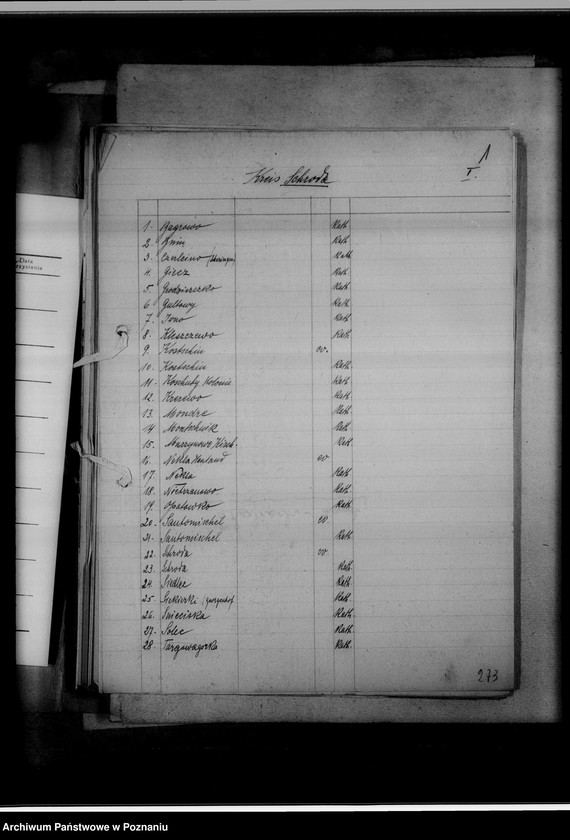 1
I.
Kreis Schroda
1. Bagrowo Kath.
2. Bnin Kath.
3. Czerleino Kath.
4. Giecz Kath.
5. Grodziszczko Kath.
6. Gultowy Kath.
7. Iwno Kath.
8. Kleszczewo Kath.
9. Kostschin ev.
10. Kostschin Kath.
11. Koschuty Kolonie Kath.
12. Krerowo Kath.
13. Mondre Kath.
14. Montschnik Kath.
15. Murzynowo Kirch. Kath.
16. Nekla Hauland ev.
17. Nekla Kath.
18. Nietrzanowo Kath.
19. Opatowko Kath.
20. Santomischel ev.
21. Santomischel Kath.
22. Schroda ev.
23. Schroda Kath.
24. Siedlec Kath.
25. Siekierki Kath.
26. Snieciska Kath.
27. Solec Kath.
28. Targowagorka Kath.
273
Archiwum Państwowe w Poznaniu